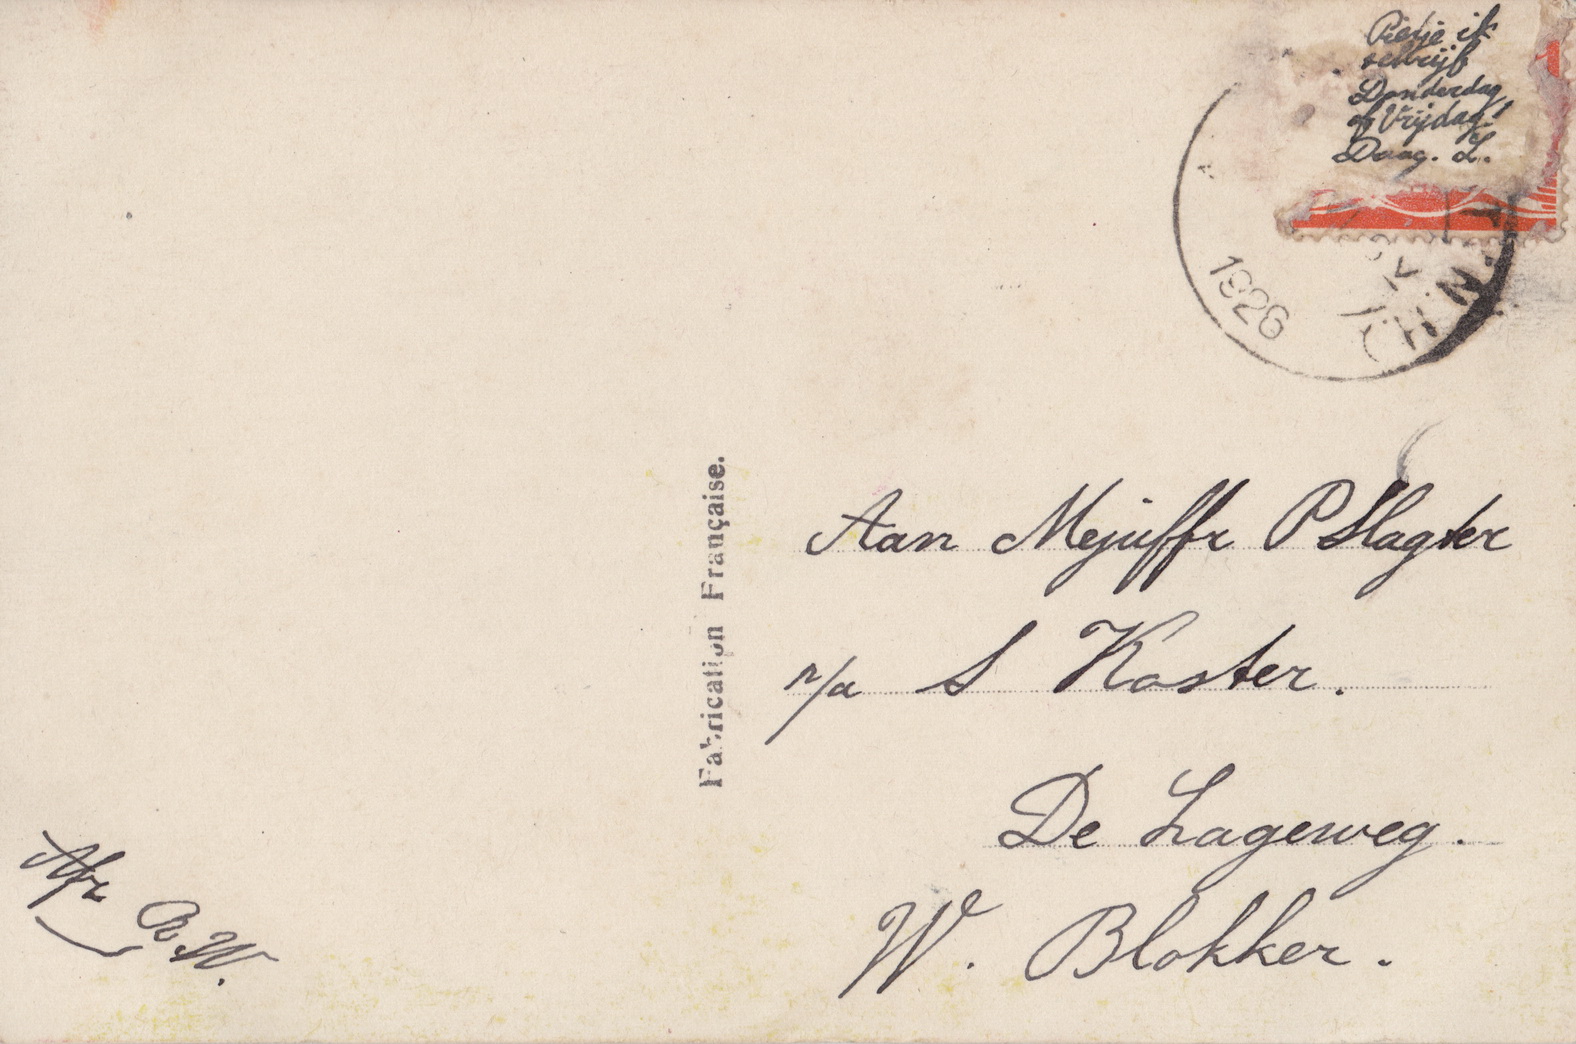 Pietje ik
schrijf
Donderdag
of Vrijdag!
Daag. L.
1926
Fabrication Française.
Aan Mejuffr P Slagter
p/a S Koster.
De Lageweg.
W. Blokker.
Afz
R.W.